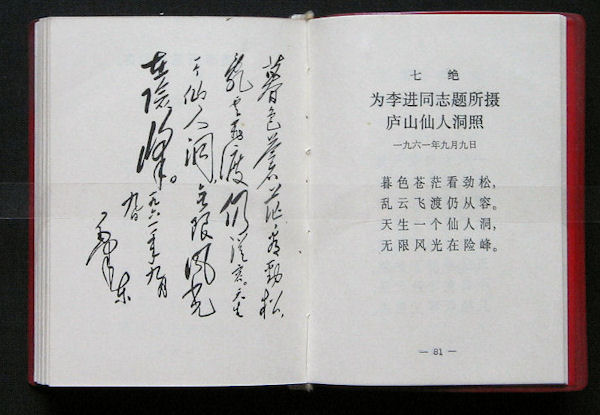 暮色蒼茫看勁松,
乱云飛渡仍從容。天生
一个仙人洞,无限風光
在險峰。
一九六一年九月
九日
毛泽东
七 绝
为李进同志题所摄
庐山仙人洞照
一九六一年九月九日
暮色苍茫看劲松,
乱云飞渡仍从容。
天生一个仙人洞,
无限风光在险峰。
— 81 —